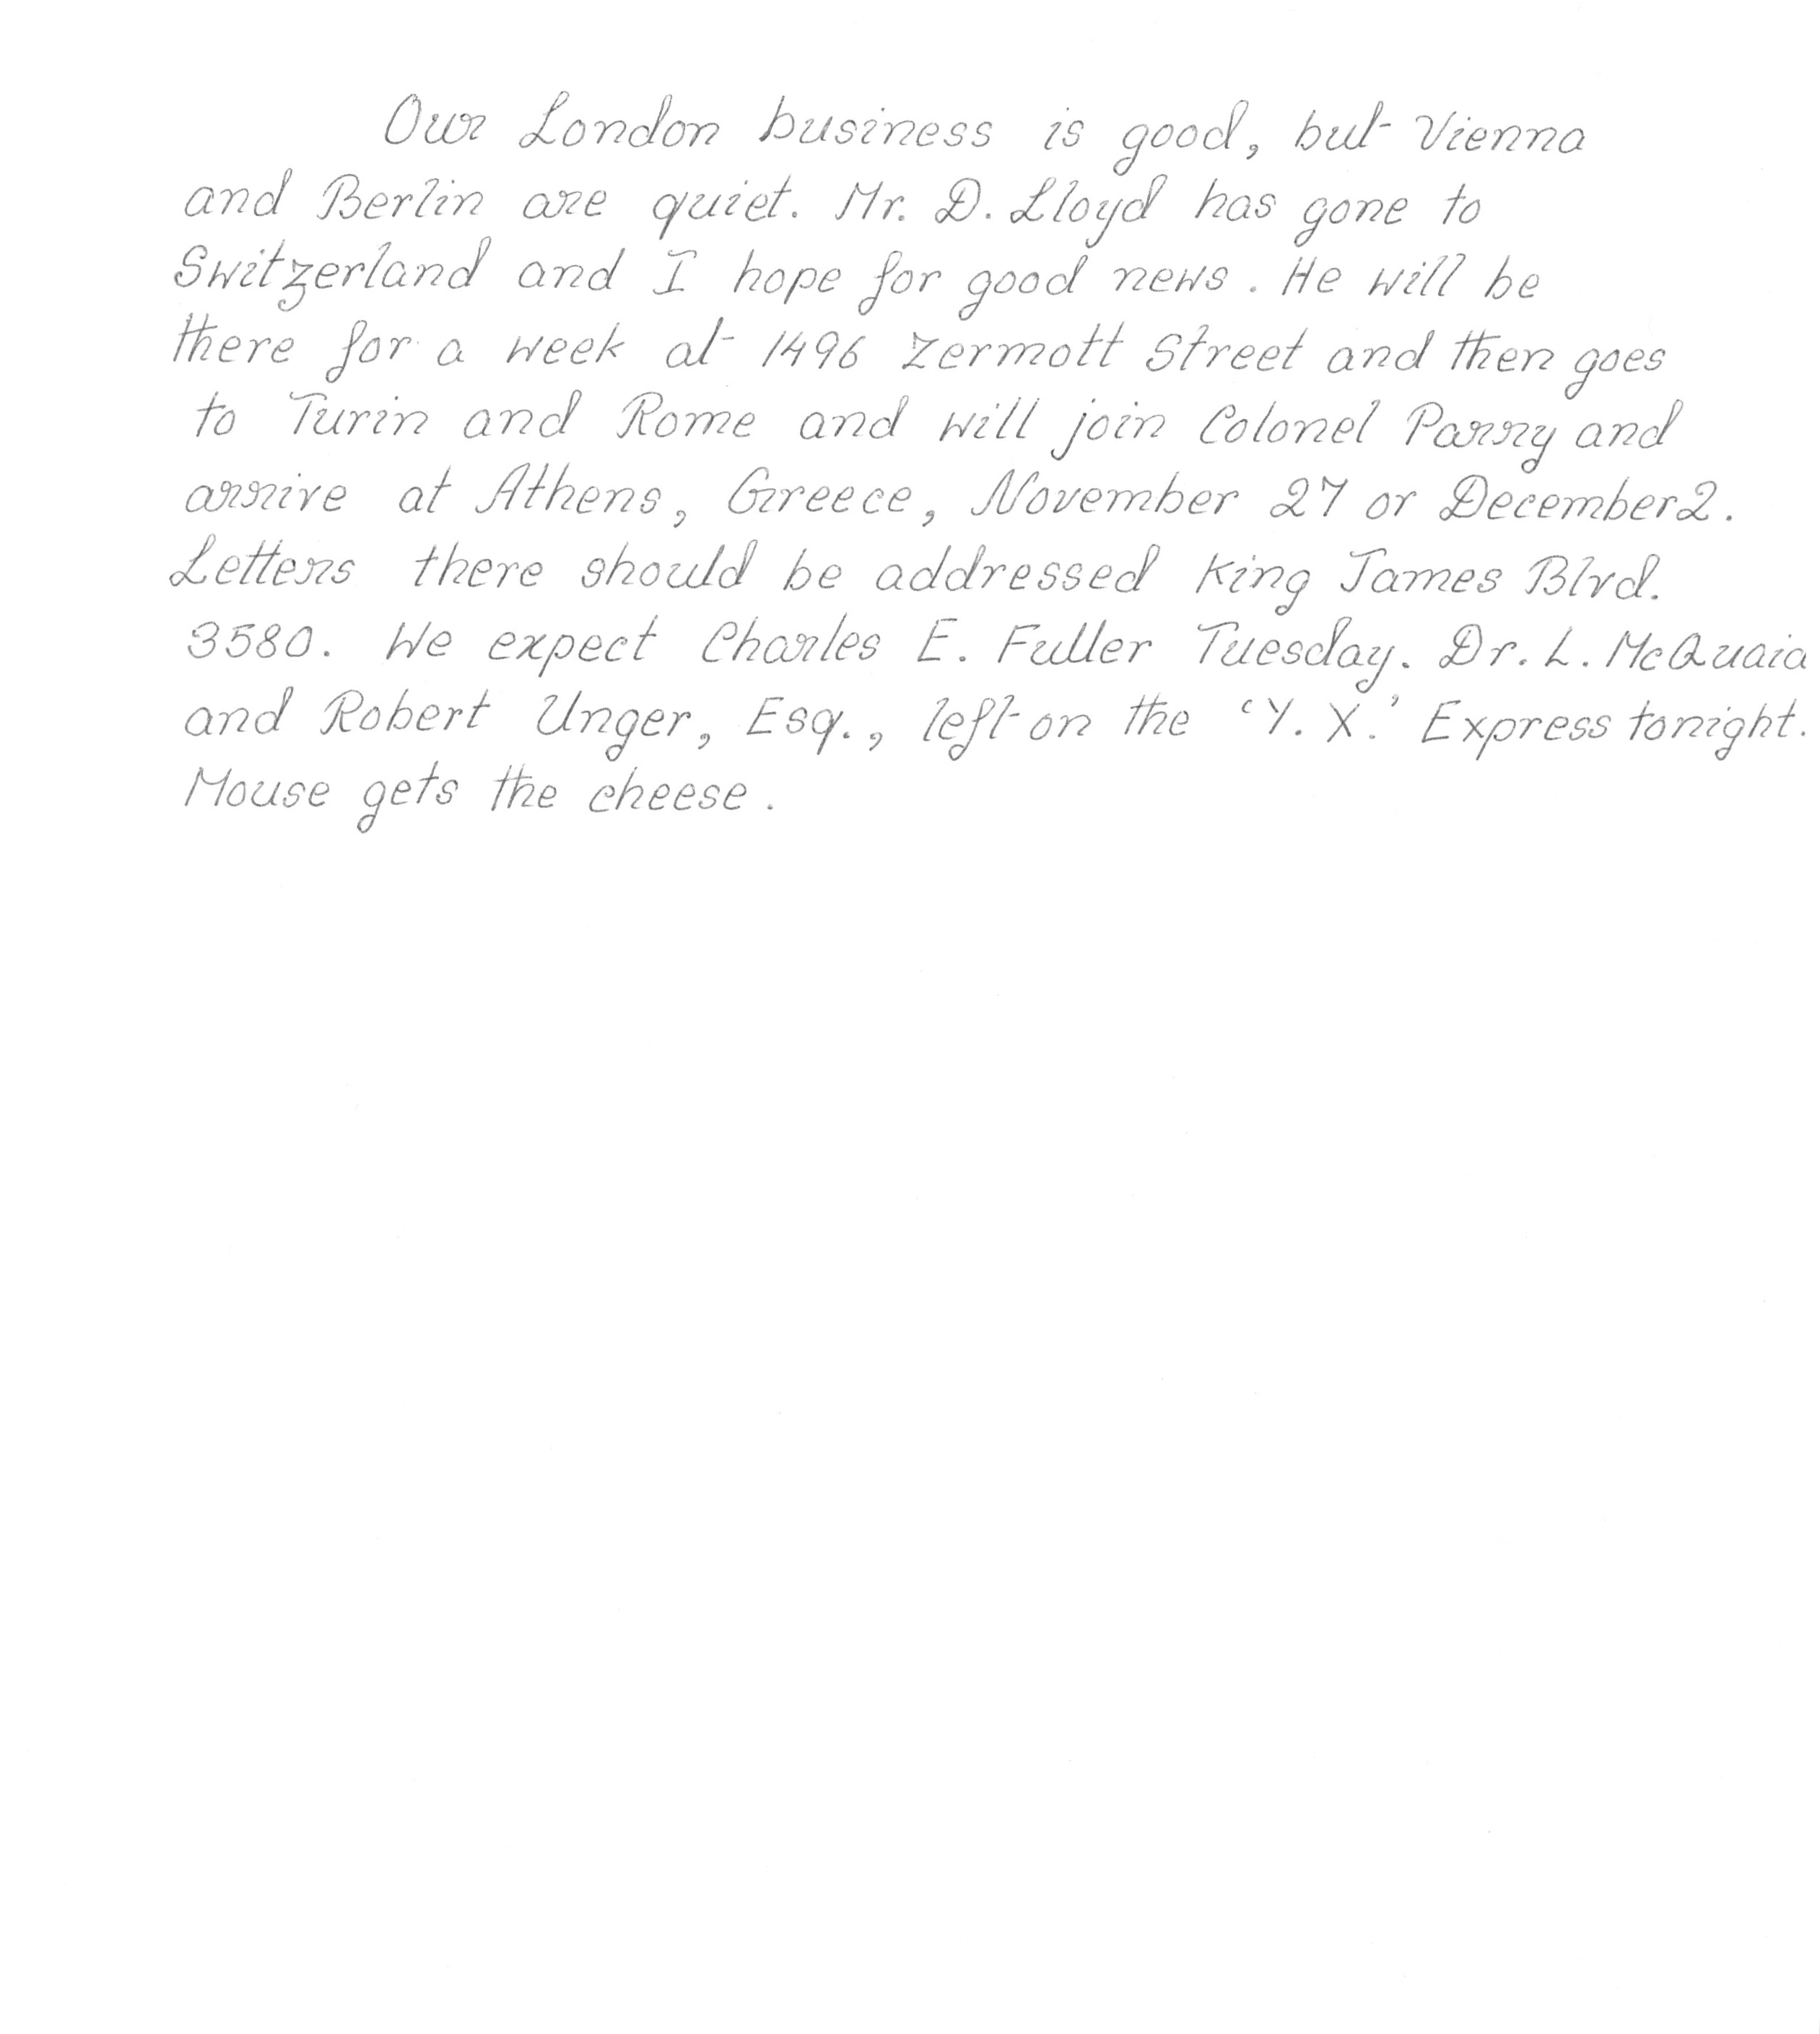 Our London business is good, but Vienna
and Berlin are quiet. Mr. D. Lloyd has gone to
Switzerland and I hope for good news. He will be
there for a week at 1496 Zermott Street and then goes
to Turin and Rome and will join Colonel Parry and
arrive at Athens, Greece, November 27 or December 2.
Letters there should be addressed King James Blvd.
3580. We expect Charles E. Fuller Tuesday. Dr. L. McQuaid
and Robert Unger, Esq., left on the 'Y. X.' Express tonight.
Mouse gets the cheese.